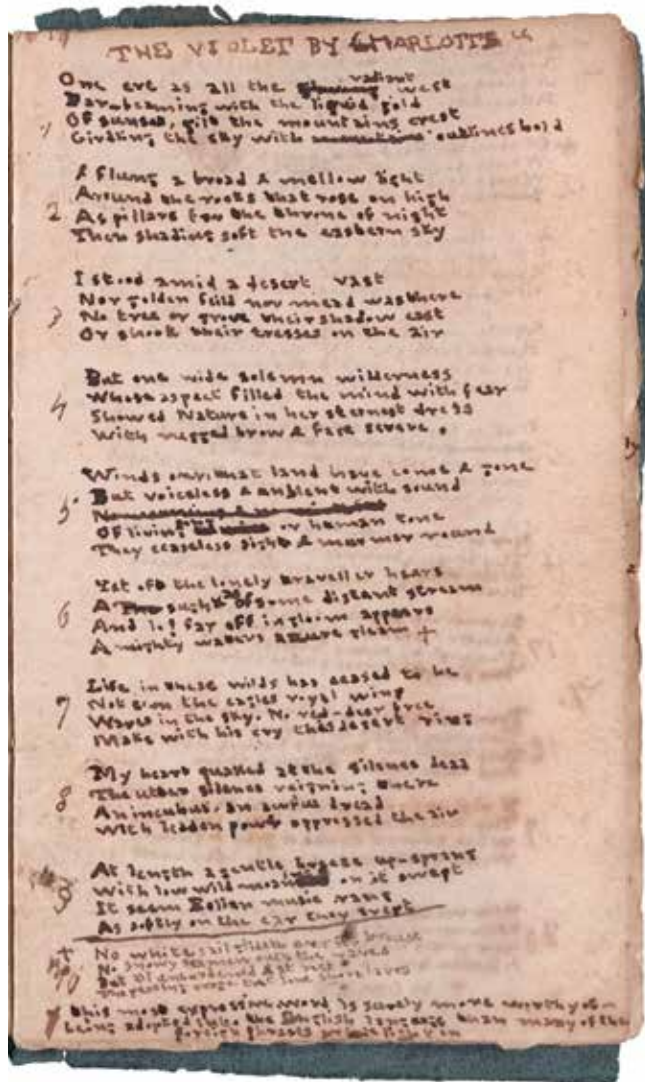 THE VIOLET BY CHARLOTTE
One eve as all the radiant west
Far beaming with the liquid gold
Of sunset, gilt the mountains crest
1 Girdling the sky with outlines bold
& flung a broad & mellow light
Around the rocks that rose on high
2 As pillars for the throne of night
Then shading soft the eastern sky
I stood amid a desert vast
Nor golden feild nor mead was there
3 No tree or grove their shadow cast
Or shook their tresses on the air
But one wide solemn wilderness
4 Whose aspect filled the mind with fear
Showed Nature in her sternest dress
With rugged brow & face severe.
Winds over that land have come & gone
5 But voiceless & unblent with sound
Of living or human tone
They ceaseless sight & murmur round
Yet oft the lonely traveller hears
6 A of some distant stream
And lo! far off in gloom appears
A mighty waters azure gleam +
Life in these wilds has ceased to be
7 Not even the eagles royal wing
Waves in the sky. No red-deer free
Make with his cry the desert ring
My heart quailed at the silence dead
8 The utter silence reigning there
An incubus. an awful dread
With leaden power oppressed the air
At length a gentle breeze up-sprang
9 With low wild moan on it swept
It seem Eolian music rang
As softly on the ear they crept
+ No white sail over its
No snowy the waves
But &
that shore laves
this most expressive word is surely more worthy of
being adopted into the English language than many of the
foreign phrases